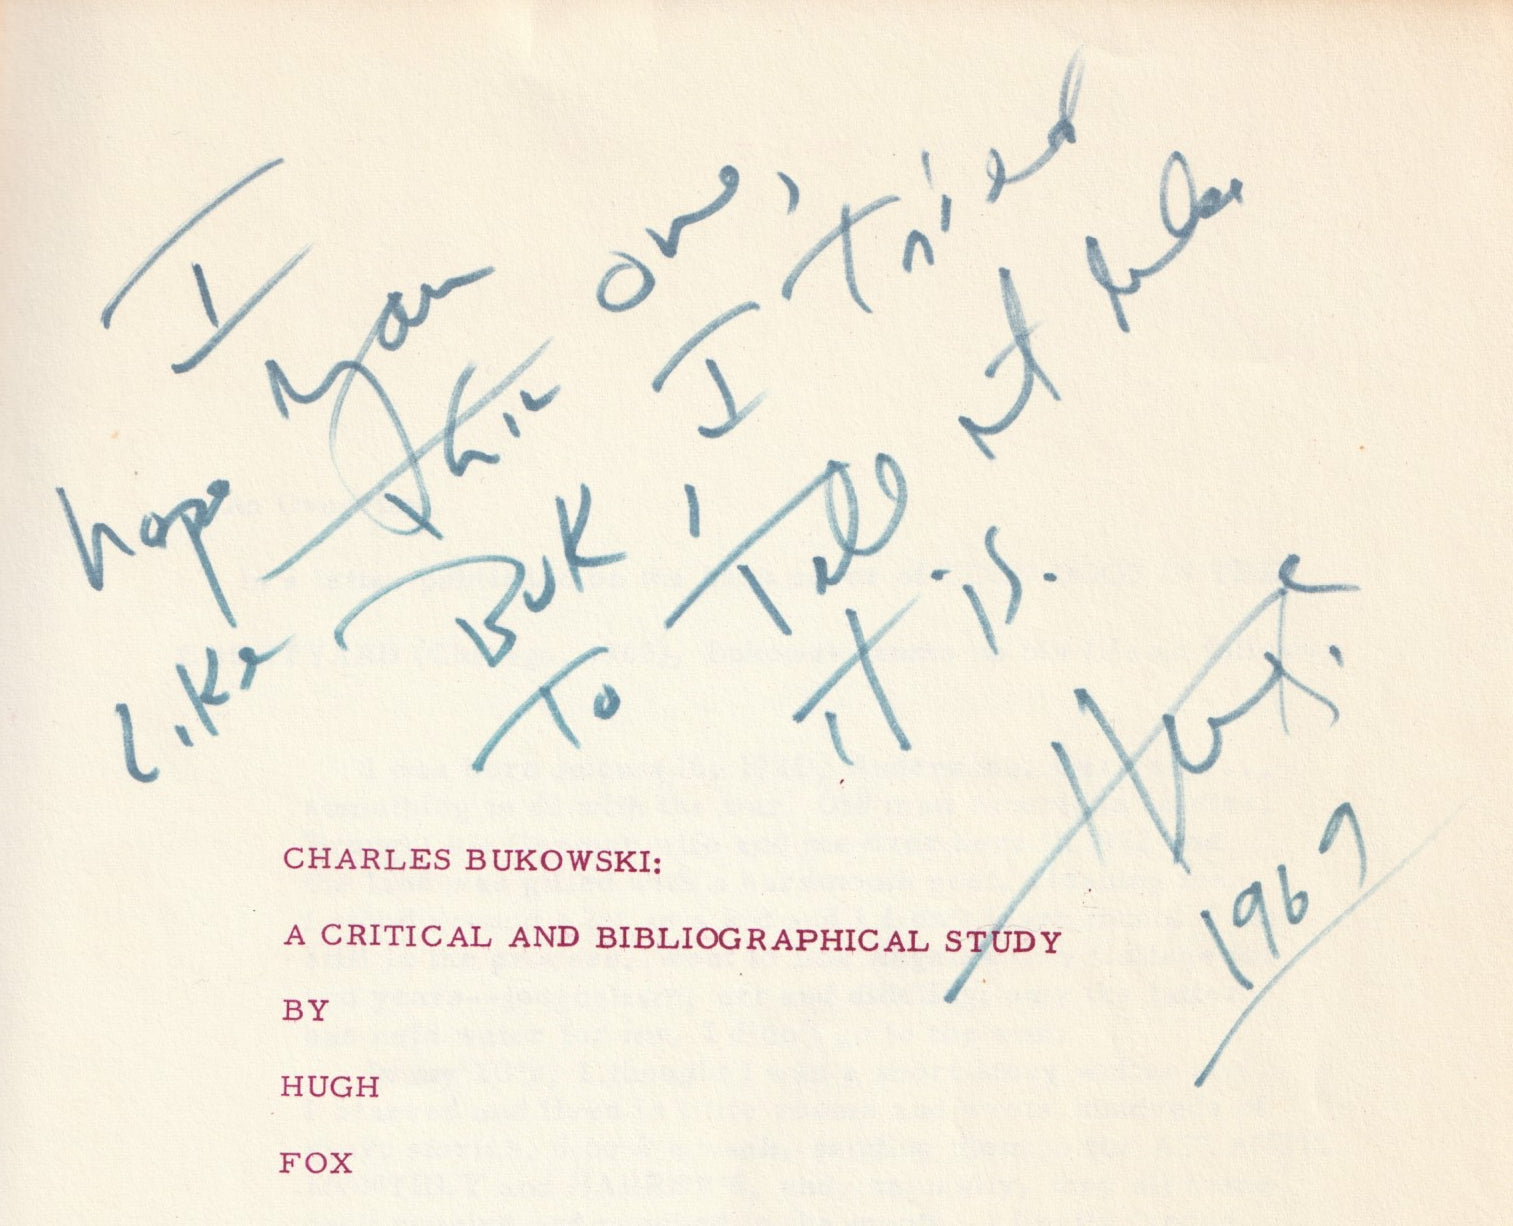 I
hope you
Like this one,
Buk, I tried
To Tell
it is.
1967
CHARLES BUKOWSKI:
A CRITICAL AND BIBLIOGRAPHICAL STUDY
BY
HUGH
FOX